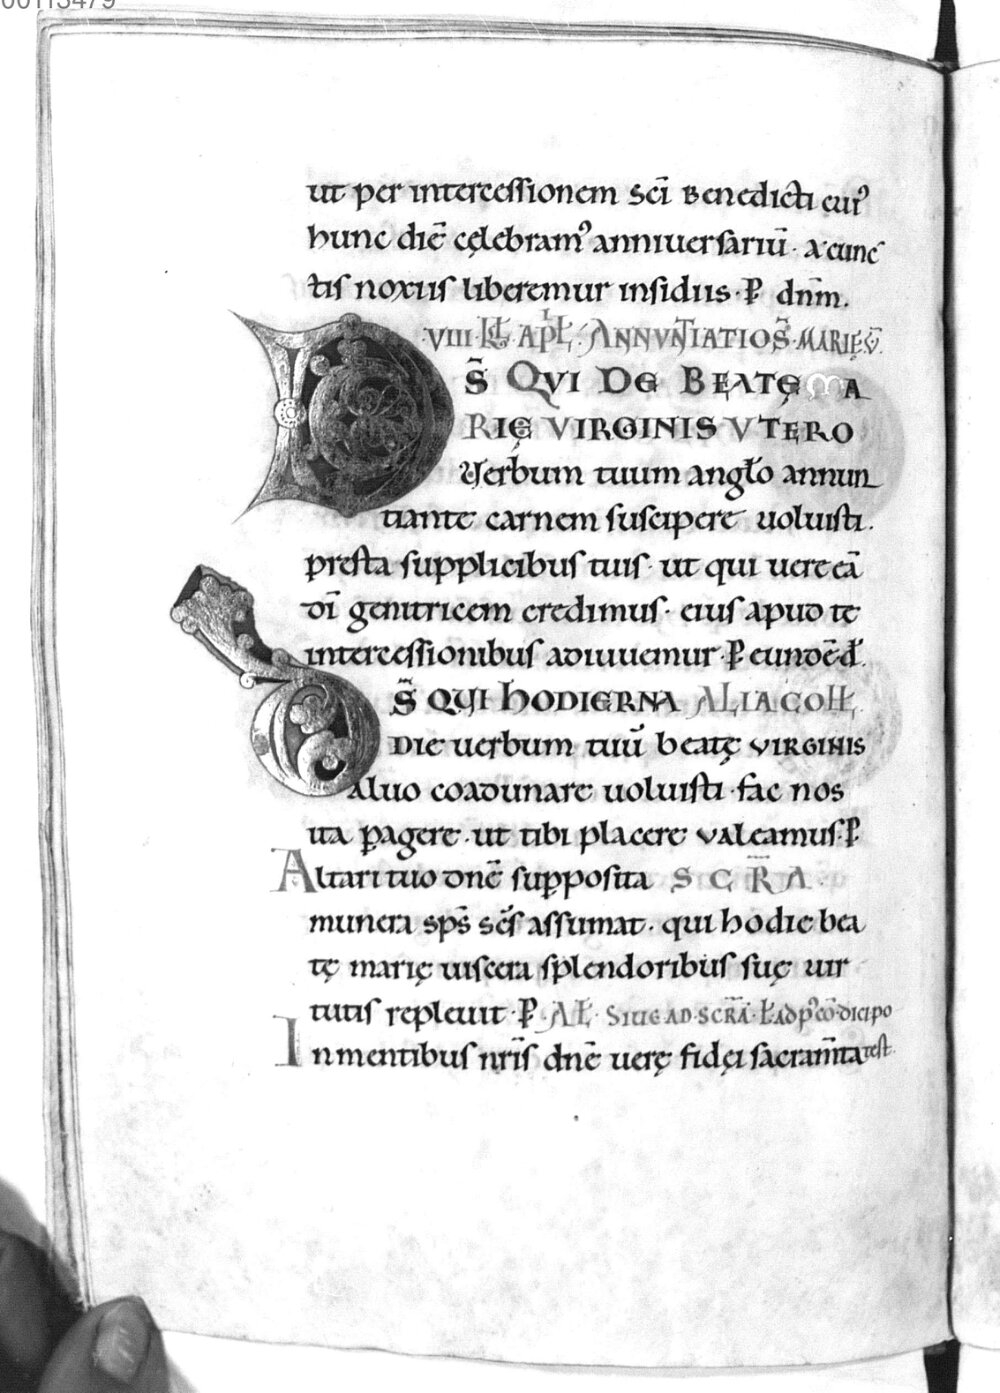 00113479
ut per intercessionem sc̄i Benedicti cuiꝰ
hunc diē cęlebramꝰ anniuersariū· a cunc
tis noxiis liberemur insidiis· P dn̄m.
VIII· KŁ· APŁ· ANNUNTIATIO S̄· MARIĘ V̄.
D S̄ QVI DE BEATĘ MA
RIĘ VIRGINIS VTERO
Verbum tuum angło annun
tiante carnem suscipere uoluisti.
presta supplicibus tuis· ut qui uere eā
dī genitricem credimus· eius apud te
intercessionibus adiuuemur· P eundē đ.
D S̄ QUI HODIERNA ALIA COŁŁ
DIE uerbum tuū beatę VIRGINIS
aluo coadunare uoluisti· fac nos
ita ꝑagere· ut tibi placere valeamus· P
Altari tuo dn̄e supposita S C R̄ A·
munera sp̄s sc̄s assumat· qui hodie bea
tę marię uiscera splendoribus suę uir
tutis repleuit· P AŁ· SIUE AD SCR̄A· Ł AD PꝰCŌ· dicipo
In mentibus nr̄is dn̄e uerę fidęi sacram̄ta test.